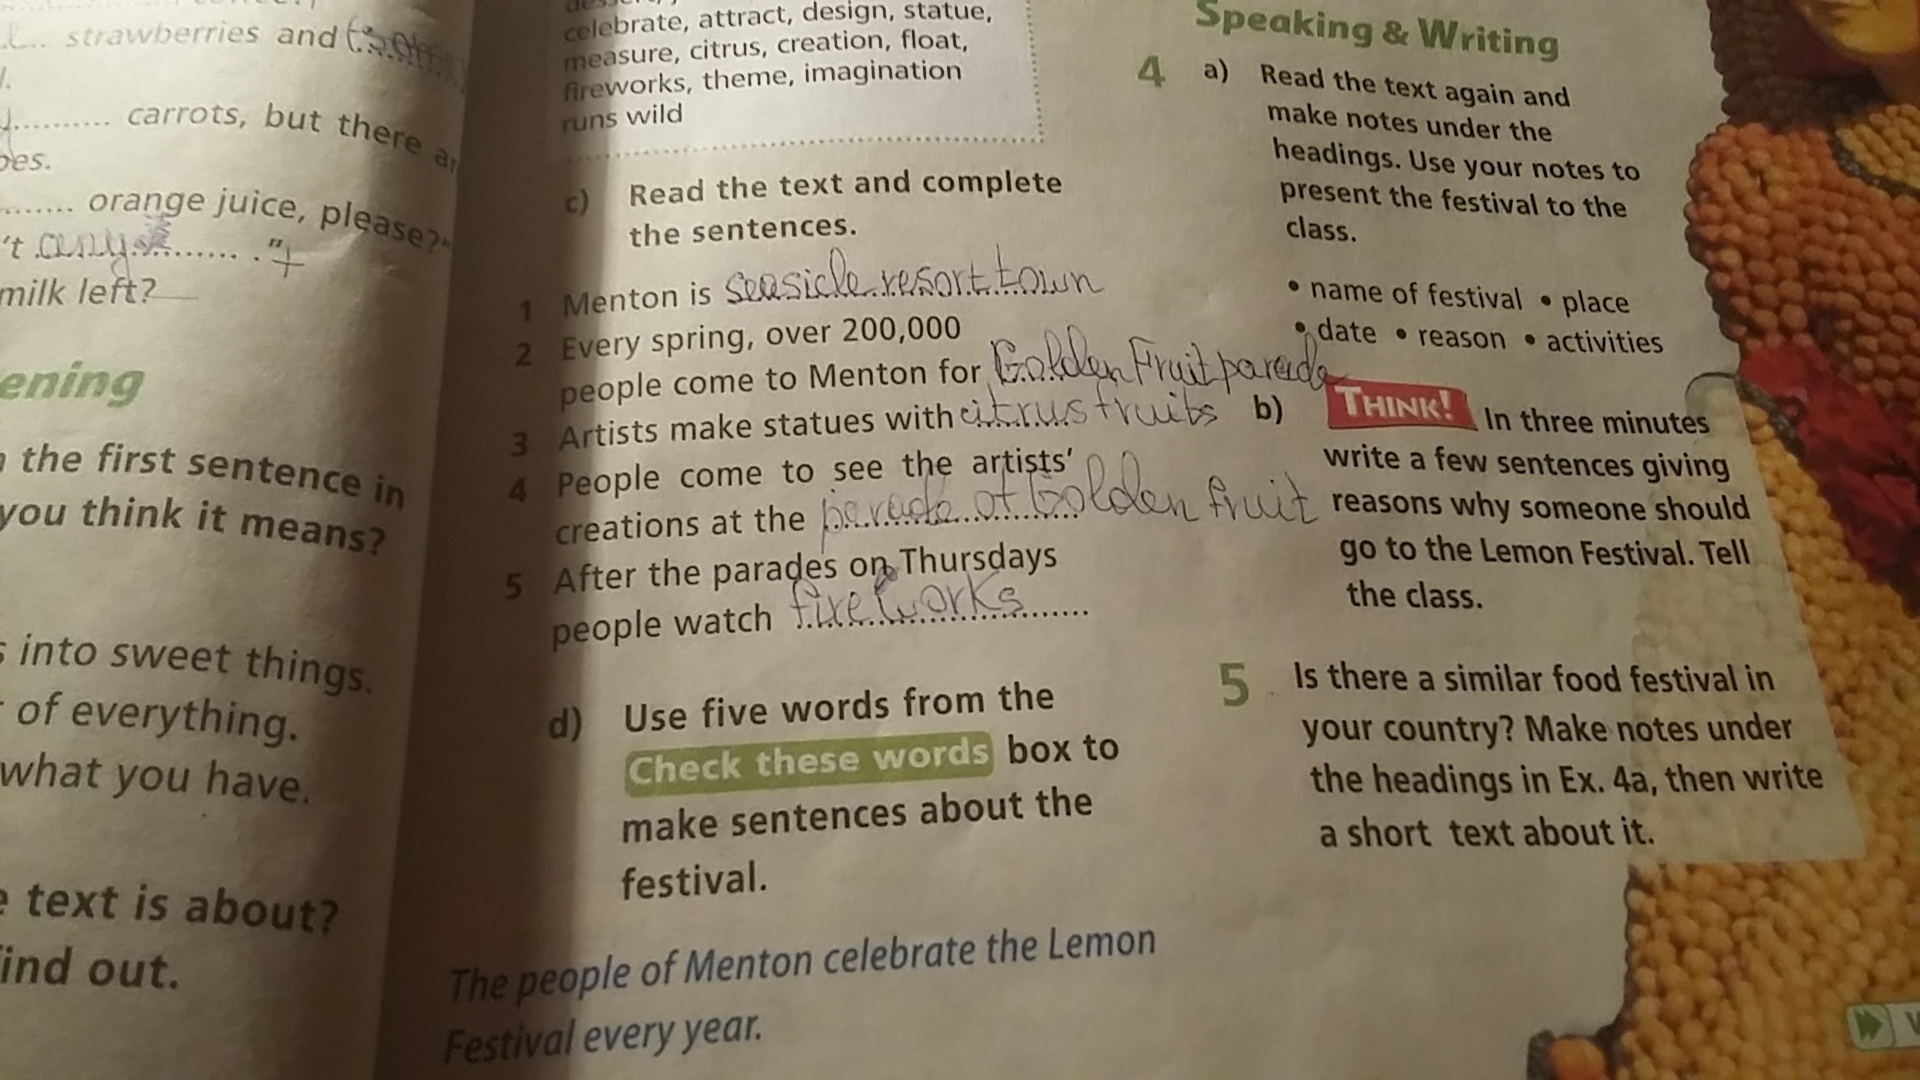 strawberries and
carrots, but there ar
orange juice, please?"
't any ."
milk left?
ening
the first sentence in
you think it means?
into sweet things.
of everything.
what you have.
text is about?
ind out.
celebrate, attract, design, statue,
measure, citrus, creation, float,
fireworks, theme, imagination
runs wild
c) Read the text and complete
the sentences.
1 Menton is seaside resort town
2 Every spring, over 200,000
people come to Menton for Golden Fruit parade
3 Artists make statues with citrus fruits
4 People come to see the artists'
creations at the parade of Golden fruit
5 After the parades on Thursdays
people watch fireworks
d) Use five words from the
Check these words box to
make sentences about the
festival.
The people of Menton celebrate the Lemon
Festival every year.
Speaking & Writing
4 a) Read the text again and
make notes under the
headings. Use your notes to
present the festival to the
class.
• name of festival • place
• date • reason • activities
b) THINK! In three minutes
write a few sentences giving
reasons why someone should
go to the Lemon Festival. Tell
the class.
5 Is there a similar food festival in
your country? Make notes under
the headings in Ex. 4a, then write
a short text about it.